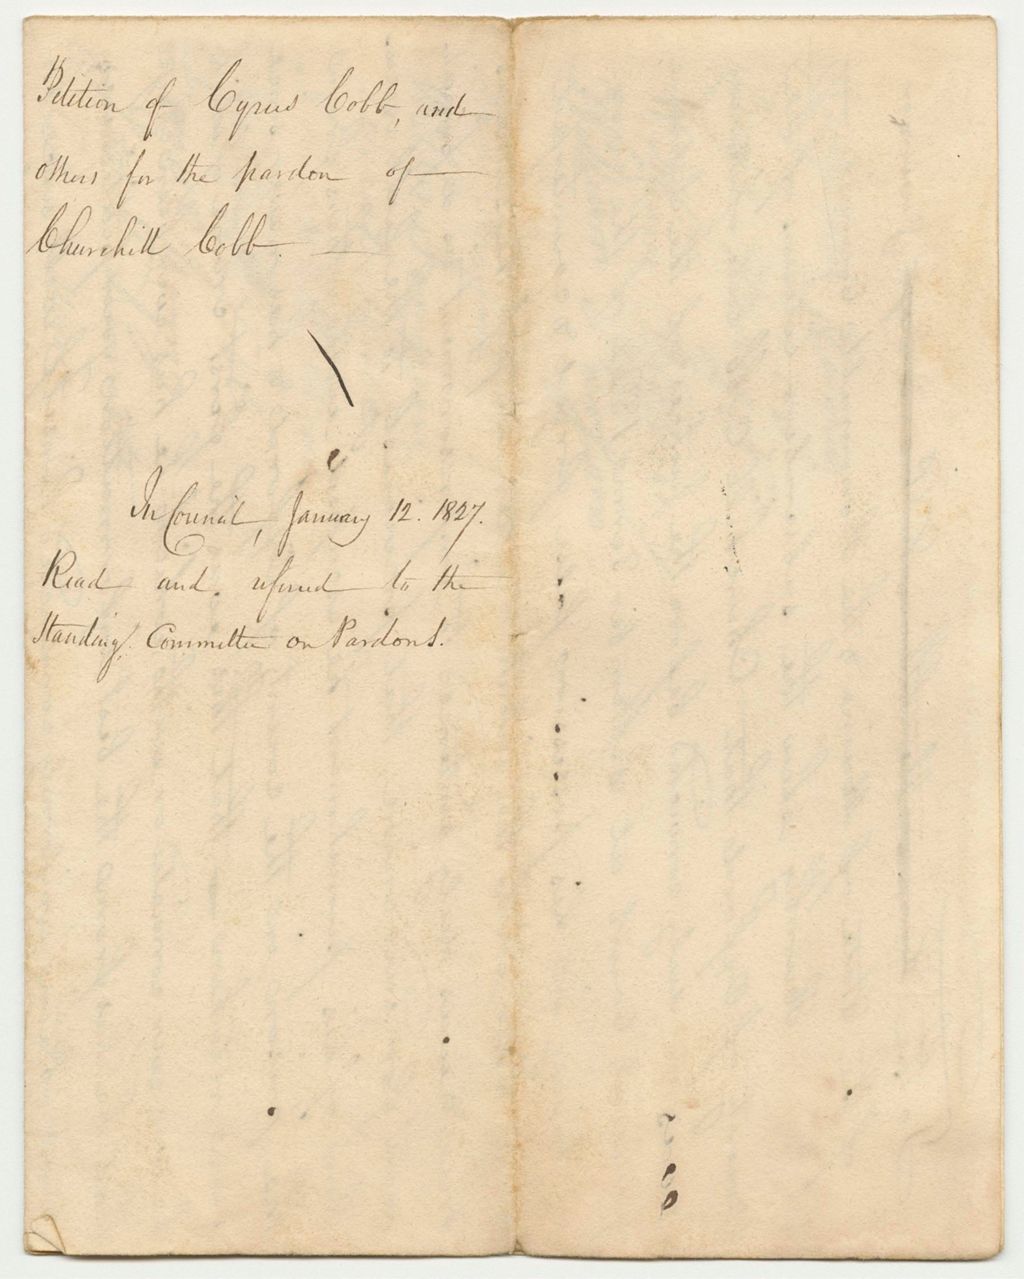 Petition of Cyrus Cobb, and
others for the pardon of
Churchill Cobb.
In Council, January 12. 1827.
Read and referred to the
Standing Committee on Pardons.